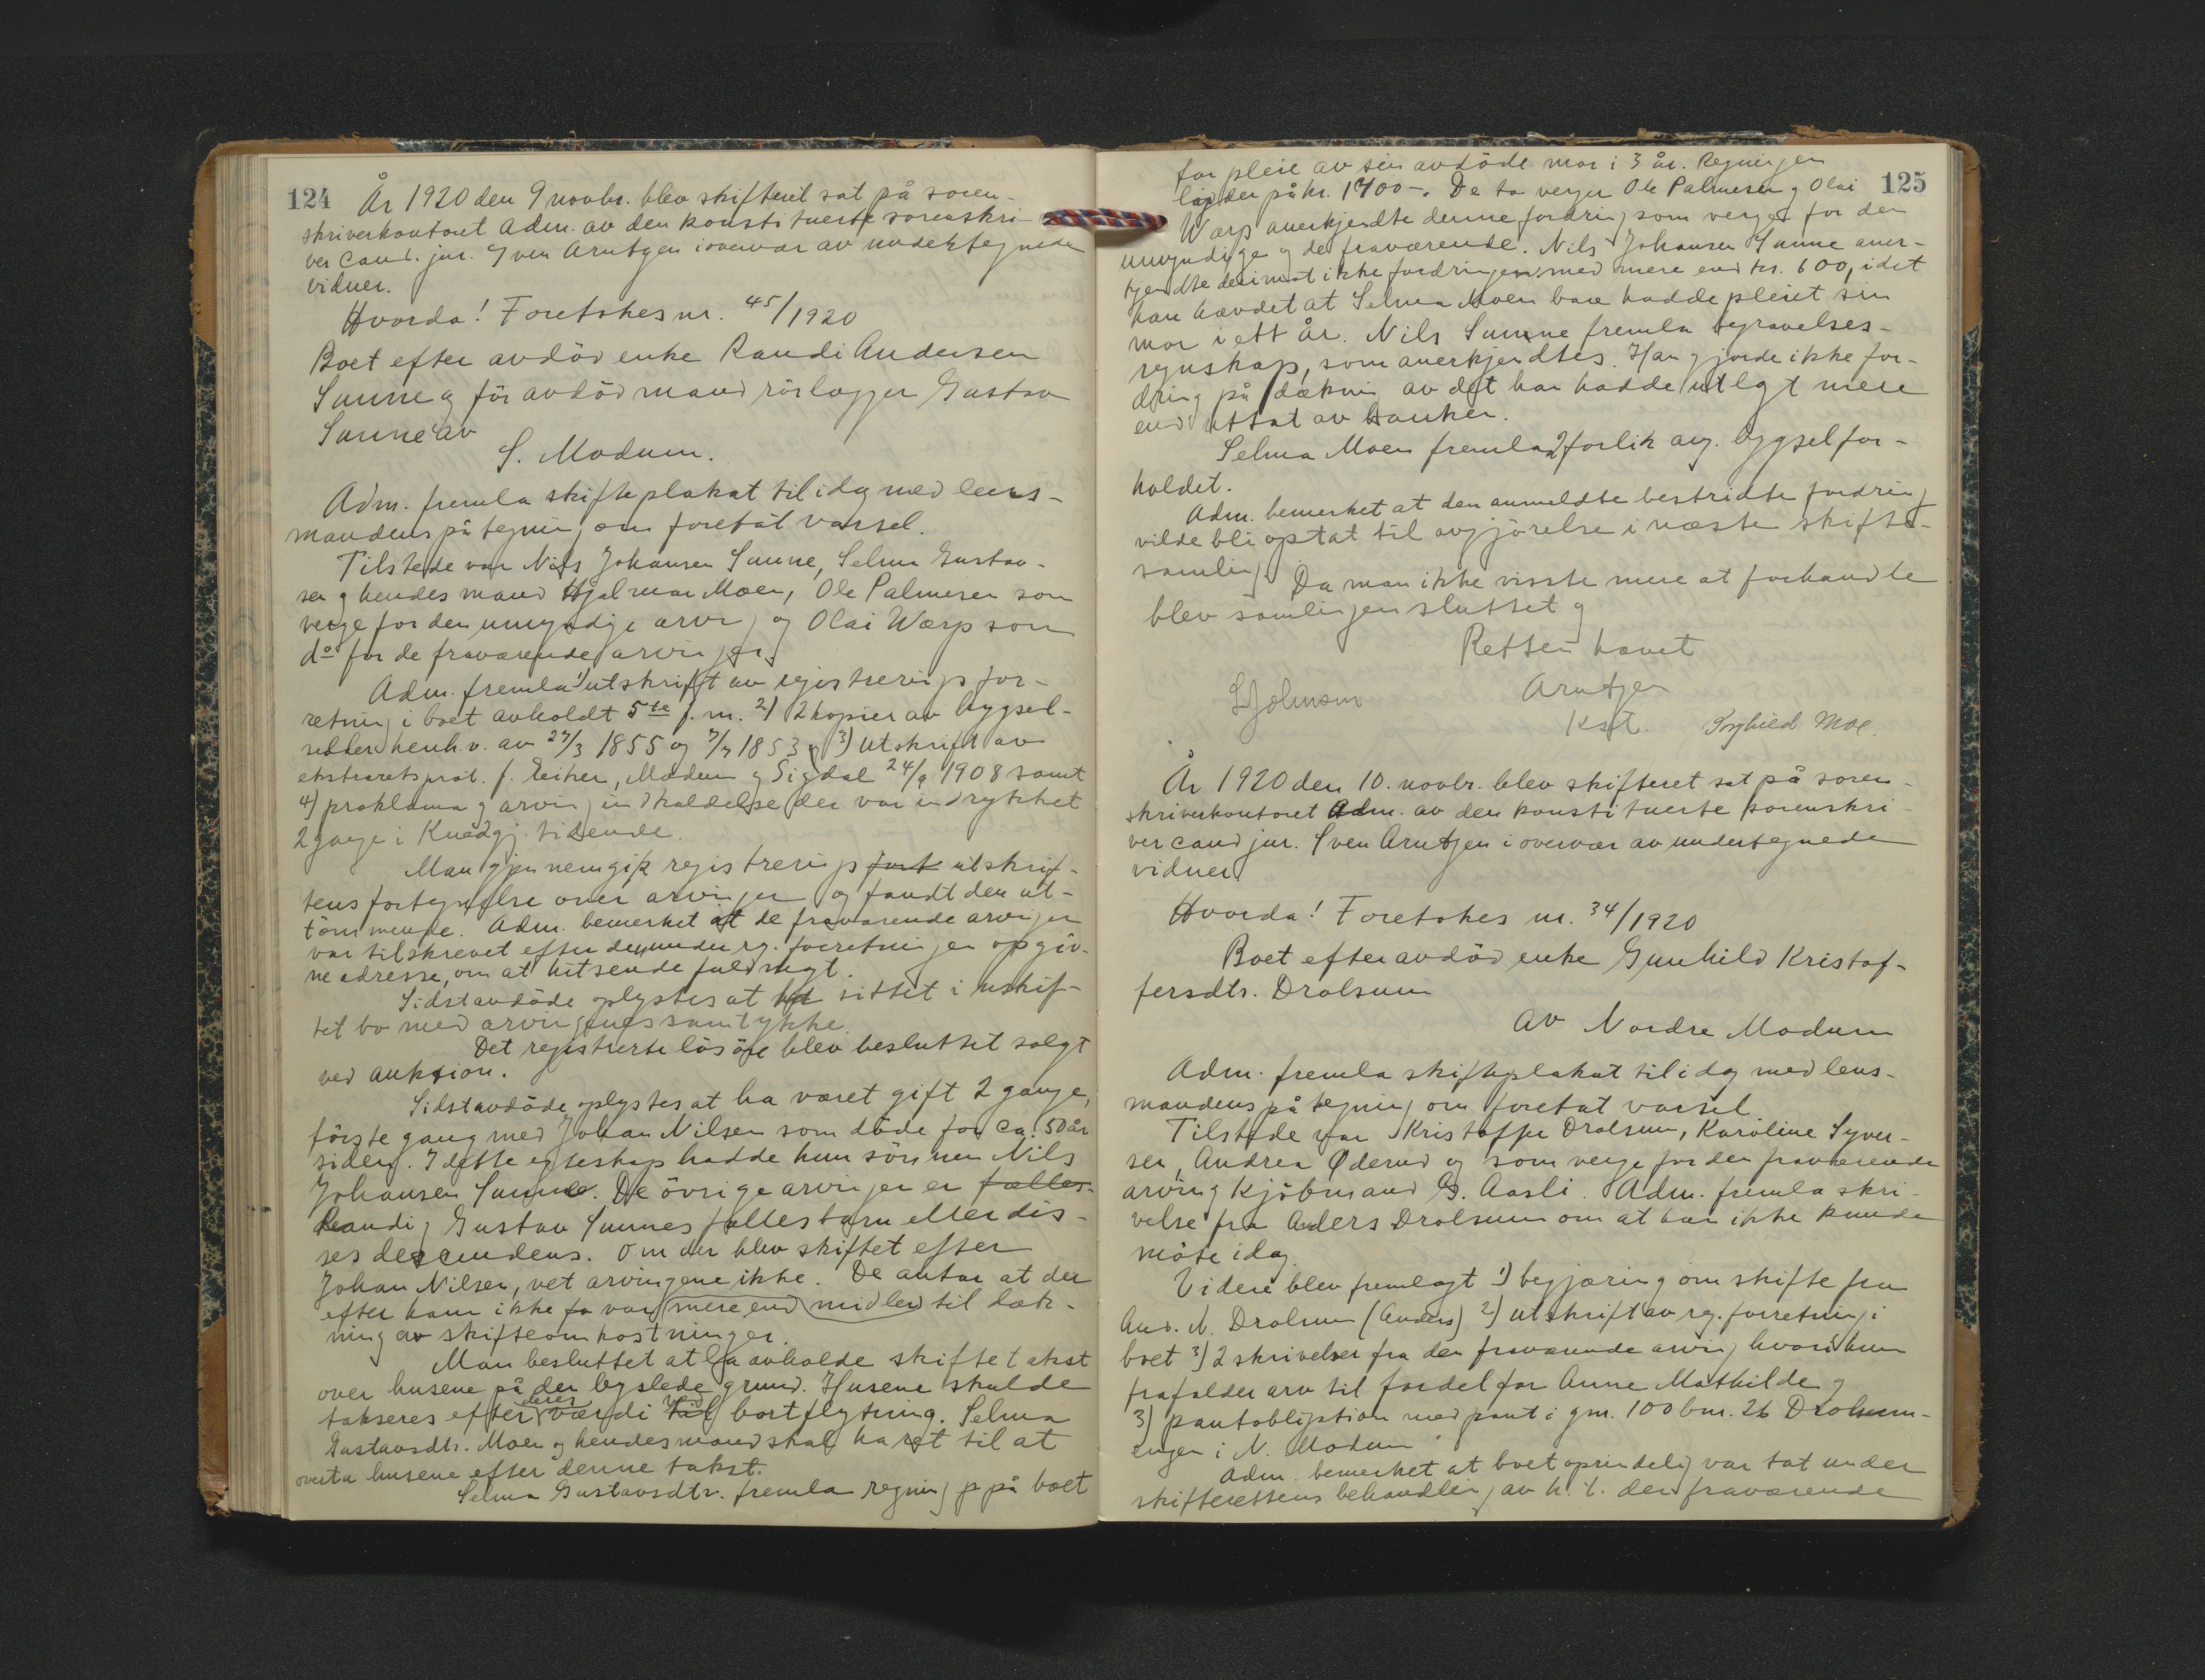 124
År 1920 den 9 novbr. blev skifteret sat på soren-
skriverkontoret Adm. av den konstituerte sorenskri-
ver cand. jur. Sven Arntzen i overvær av undertegnede
vidner.
Hvorda! Foretokes nr. 45/1920
Boet efter avdöd enke Randi Andersen
Sunne og för avdöd mand rörlægger Gustav
Sunne av
S. Modum.
Adm. fremla skifteplakat til idag med lens-
mandens påtegning om foretat varsel.
Tilstede var Nils Johansen Sunne, Selma Gustav-
sen og hendes mand Hjalmar Moen, Ole Palmesen som
verge for den umyndige arving og Olai Wærp som
do for de fraværende arvinger.
Adm. fremla 1) utskrift av registreringsfor-
retning i boet avholdt 5te f. m. 2) 2 kopier av bygsel-
sedler henh.v. av 27/3 1855 og 7/7 1853 og 3) Utskrift av
ekstraretsprot. f. Eiker, Modum og Sigdal 24/9 1908 samt
4) proklama og arvingindkaldelse der var indrykket
2 gange i Kundgj. tidende.
Man gjennemgik registrerings fort utskrif-
tens fortegnelse over arvinger og fandt den ut-
tömmende. Adm. bemerket at de fraværende arvinger
var tilskrevet efter den under rg. forretningen opgiv-
ne adresse, om at utsende fuldmagt.
Sidstavdöde oplystes at ha sittet i uskif-
tet bo med arvingenes samtykke.
Det registrerte lösöre blev besluttet solgt
ved auktion.
Sidstavdöde oplystes at ha været gift 2 gange,
förste gang med Johan Nilsen som döde for ca. 50 år
siden. I dette egteskap hadde hun sönnen Nils
Johansen Sunne. De övrige arvinger er fælles-
Randi og Gustav Sunnes fælles barn eller dis-
ses descendens. Om der blev skiftet efter
Johan Nilsen, vet arvingene ikke. De antar at der
efter ham ikke fa var mere end midler til dæk-
ning av skifteomkostninger.
Man besluttet at la avholde skiftetakst
over husene på den bygslede grund. Husene skulde
takseres efter deres værdi til ved bortflytning. Selma
Gustavsdtr. Moen og hendes mand skal ha ret til at
overta husene efter denne takst.
Selma Gustavsdtr. fremla regning p på boet
125
for pleie av sin avdöde mor i 3 år. Regningen
løpder på kr. 1700-. De to verger Ole Palmesen og Olai
Wærp anerkjendte denne fordring som verger for den
umyndige og de fraværende. Nils Johansen Sunne aner-
kjendte derimot ikke fordringen med mere end kr. 600, idet
han hævdet at Selma Moen bare hadde pleiet sin
mor i ett år. Nils Sunne fremla begravelses-
regnskap, som anerkjendtes. Han gjorde ikke for-
dring på dækning av det han hadde utlagt mere
end uttat av banken.
Selma Moen fremla 2 forlik ang. bygselfor-
holdet.
Adm. bemerket at den anmeldte bestridte fordring
vilde bli optat til avgjörelse i næste skifte-
samling. Da man ikke visste mere at forhandle
blev samlingen sluttet og
Retten hævet
Arntzen
kst.
Torghild Moe.
År 1920 den 10. novbr. blev skifteret sat på soren-
skriverkontoret Adm. av den konstituerte sorenskri-
ver cand jur. Sven Arntzen i overvær av undertegnede
vidner
Hvorda! Foretokes nr. 34/1920
Boet efter avdöd enke Gunhild Kristof-
fersdtr. Drolsum
av Nordre Modum
Adm. fremla skifteplakat til idag med lens-
mandens påtegning om foretat varsel.
Tilstede var Kristoffer Drolsum, Karoline Syver-
sen, Andrea Øderud og som verge for den fraværende
arving kjöbmand G. Aasli. Adm. fremla skri-
velse fra Anders Drolsum om at han ikke kunde
möte idag.
Videre blev fremlagt 1) begjæring om skifte fra
And. N. Drolsum (Anders) 2) utskrift av rg. forretning i
boet 3) 2 skrivelser fra den fraværende arving hvori hun
frafalder arv til fordel for Anne Mathilde og
3) pantobligation med pant i gnr. 100 bnr. 26 Drolsum-
engen i N. Modum
Adm. bemerket at boet oprindelig var tat under
skifterettens behandling av h. t. den fraværende